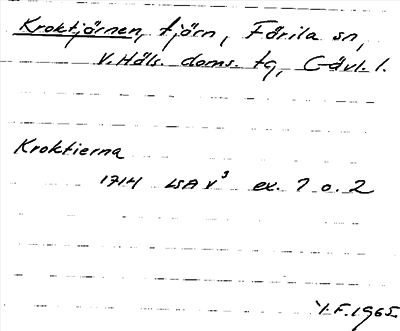 Kroktjärnen, tjärn, Färila sn,
V. Häls. doms. tg, Gävl. l.
Kroktierna
1714 LSA V³ ex. 1 o. 2
Y.F. 1965